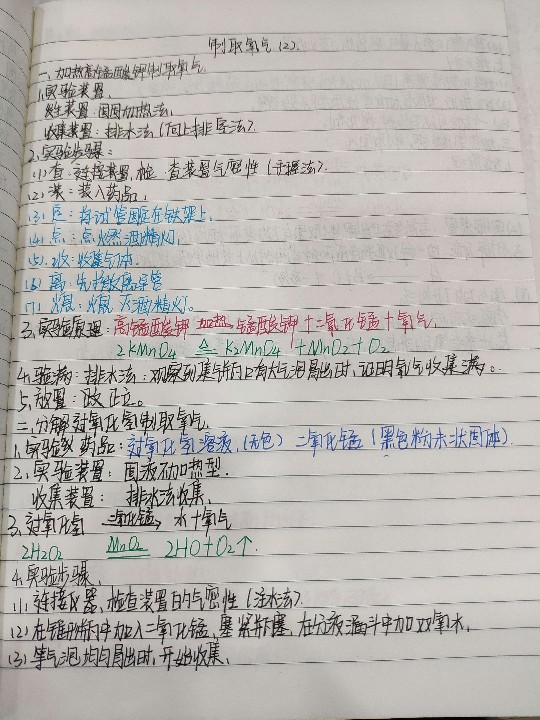 制取氧气(2).
一、加热高锰酸钾制取氧气.
1.实验装置.
发生装置:固固加热法.
收集装置:排水法(向上排空法).
2.实验步骤:
(1)查:连接装置,检查装置气密性(手握法).
(2)装:装入药品.
(3)定:将试管固定在铁架上.
(4)点:点燃酒精灯.
(5)收:收集气体.
(6)离:先移做离导管
(7)熄:熄灭酒精灯。
3.实验原理:高锰酸钾 加热 锰酸钾+二氧化锰+氧气.
2KMnO4 △ K2MnO4+MnO2+O2
4.验满:排水法:观察到集气瓶口有大气泡冒出时,证明氧气收集满。
5.放置:正立。
二.分解过氧化氢制取氧气.
1.实验药品:过氧化氢溶液(无色) 二氧化锰(黑色粉末状固体).
2.实验装置:固液不加热型.
收集装置:排水法收集.
3.过氧化氢 二氧化锰 水+氧气
2H2O2 MnO2 2HO+O2↑.
4.实验步骤.
(1)连接仪器,检查装置的气密性(注水法).
(2)在锥形瓶中加入二氧化锰,塞紧瓶塞,在分液漏斗中加双氧水.
(3)等气泡均匀冒出时,开始收集.